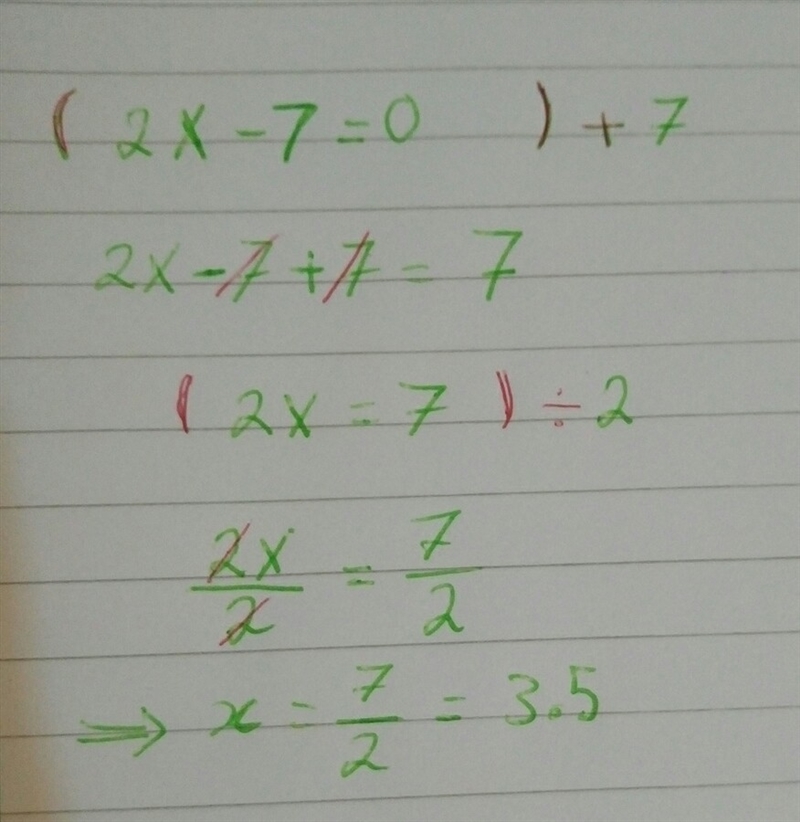 ( 2x - 7 = 0 ) + 7
2x - 7 + 7 = 7
( 2x = 7 ) ÷ 2
2x/2 = 7/2
⟹ x = 7/2 = 3.5